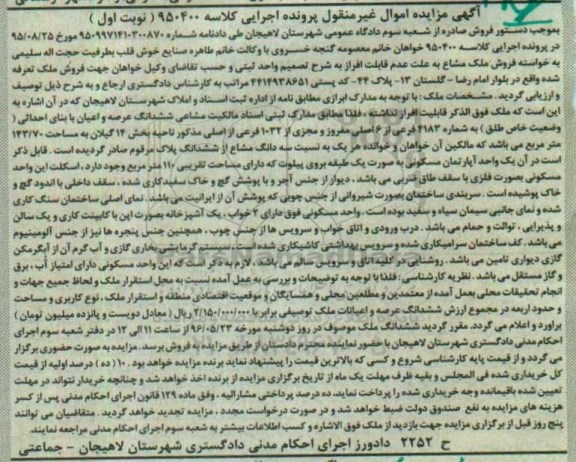 آگهی مزایده اموال غیرمنقول پرونده اجرایی کلاسه ۹۵۰۴۰۰ ( نوبت اول )
بموجب دستور فروش صادره از شعبه سوم دادگاه عمومی شهرستان لاهیجان طی دادنامه شماره ۹۵۰۹۹۷۱۴۱۰۳۰۰۸۷۰ مورخ ۹۵/۰۸/۲۵
در پرونده اجرایی کلاسه ۹۵۰۴۰۰ خواهان خانم معصومه گنجه خسروی با وکالت خانم طاهره صنایع خوش قلب بطرفیت حجت اله سلیمی
به خواسته فروش ملک مشاع به علت عدم قابلیت افراز به شرح تصمیم واحد ثبتی و حسب تقاضای وکیل خواهان جهت فروش ملک تعرفه
شده واقع در بلوار امام رضا - گلستان ۱۳- پلاک ۴۴- کد پستی ۴۴۱۴۹۳۸۶۵۱ مراتب به کارشناس دادگستری ارجاع و به شرح ذیل توصیف
و ارزیابی گردید . مشخصات ملک : با توجه به مدارک ابرازی مطابق نامه از اداره ثبت اسناد و املاک شهرستان لاهیجان که در آن اشاره به
این است که ملک فوق الذکر قابلیت افراز نداشته ، فلذا مطابق مدارک ثبتی اسناد مالکیت مشاعی ششدانگ عرصه و اعیان با بنای احداثی (
وضعیت خاص طلق ) به شماره ۴۱۸۳ فرعی از ۶ اصلی مفروز و مجزی از ۱۰۳۲ فرعی از اصلی مذکور ناحیه بخش ۱۴ گیلان به مساحت ۱۴۳/۷۰
متر مربع می باشد که مالکین آن خواهان و خوانده هر یک به نسبت سه دانگ مشاع از ششدانگ پلاک مرقوم صادر گردیده است . قابل ذکر
است در آن یک واحد آپارتمان مسکونی به صورت یک طبقه بروی پیلوت که دارای مساحت تقریبی ۱۱۰ متر مربع وجود دارد ، اسکلت این واحد
مسکونی بصورت فلزی با سقف طاق ضربی می باشد . دیوار از جنس آجر و با پوشش گچ و خاک سفیدکاری شده ، سقف داخلی با اندود گچ و
خاک پوشیده است . سربندی ساختمان بصورت شیروانی از جنس چوبی که پوشش آن از ایرانیت می باشد . نمای اصلی ساختمان سنگ کاری
شده و نمای جانبی سیمان سیاه و سفید بوده است . واحد مسکونی فوق دارای ۲ خواب ، یک آشپزخانه بصورت اپن با کابینت کاری و یک سالن
و پذیرایی ، توالت و حمام می باشد . درب ورودی و اتاق خواب و سرویس ها از جنس چوب ، همچنین جنس پنجره ها نیز از جنس آلومینیوم
می باشد . کف ساختمان سرامیکاری شده و سرویس بهداشتی کاشیکاری شده است . سیستم گرمایشی بخاری گازی و آب گرم آن از آبگرمکن
گازی دیواری تامین می باشد . روشنایی در کلیه اتاق و سرویس سالم می باشد . لازم به ذکر است که این واحد مسکونی دارای امتیاز آب ، برق
و گاز مستقل می باشد . نظریه کارشناسی : فلذا با توجه به توضیحات و بررسی به عمل آمده نسبت به محل استقرار ملک و لحاظ جمیع جهات و
انجام تحقیقات محلی بعمل آمده از معتمدین و مطلعین محلی و همسایگان و موقعیت اقتصادی منطقه و استقرار ملک ، نوع کاربری و مساحت
و حدود اربعه در مجموع ارزش ششدانگ عرصه و اعیانات ملک توصیفی برابر با ۲/۱۵۰/۰۰۰/۰۰۰ ریال ( معادل دویست و پانزده میلیون تومان )
براورد و اعلام می گردد. مقرر گردید ششدانگ ملک موصوف در روز دوشنبه مورخه ۹۶/۰۵/۲۳ از ساعت ۱۱ الی ۱۲ در دفتر شعبه سوم اجرای
احکام مدنی دادگستری شهرستان لاهیجان با حضور نماینده محترم دادستان از طریق مزایده به فروش برسد . مزایده به صورت حضوری برگزار
می گردد و از قیمت پایه کارشناسی شروع و کسی که بالاترین قیمت را پیشنهاد نماید برنده مزایده خواهد بود . ۱۰ ( ده ) درصد اولیه از قیمت
کل خریداری شده فی المجلس و بقیه ظرف مهلت یک ماه از تاریخ برگزاری مزایده از برنده اخذ خواهد شد و چنانچه خریدار نتواند در مهلت
تعیین شده باقیمانده وجه خریداری شده را پرداخت نماید، ده درصد پرداختی مشارالیه ، وفق ماده ۱۲۹ قانون اجرای احکام مدنی پس از کسر
هزینه های مزایده به نفع صندوق دولت ضبط خواهد شد و در صورت درخواست مجدد ، مزایده تجدید خواهد گردید . متقاضیان می توانند
پنج روز قبل از برگزاری مزایده جهت بازدید از ملک فوق الاشاره و کسب اطلاعات بیشتر به شعبه سوم اجرای احکام مدنی مراجعه نمایند.
ح ۲۲۵۲ دادورز اجرای احکام مدنی دادگستری شهرستان لاهیجان - جماعتی